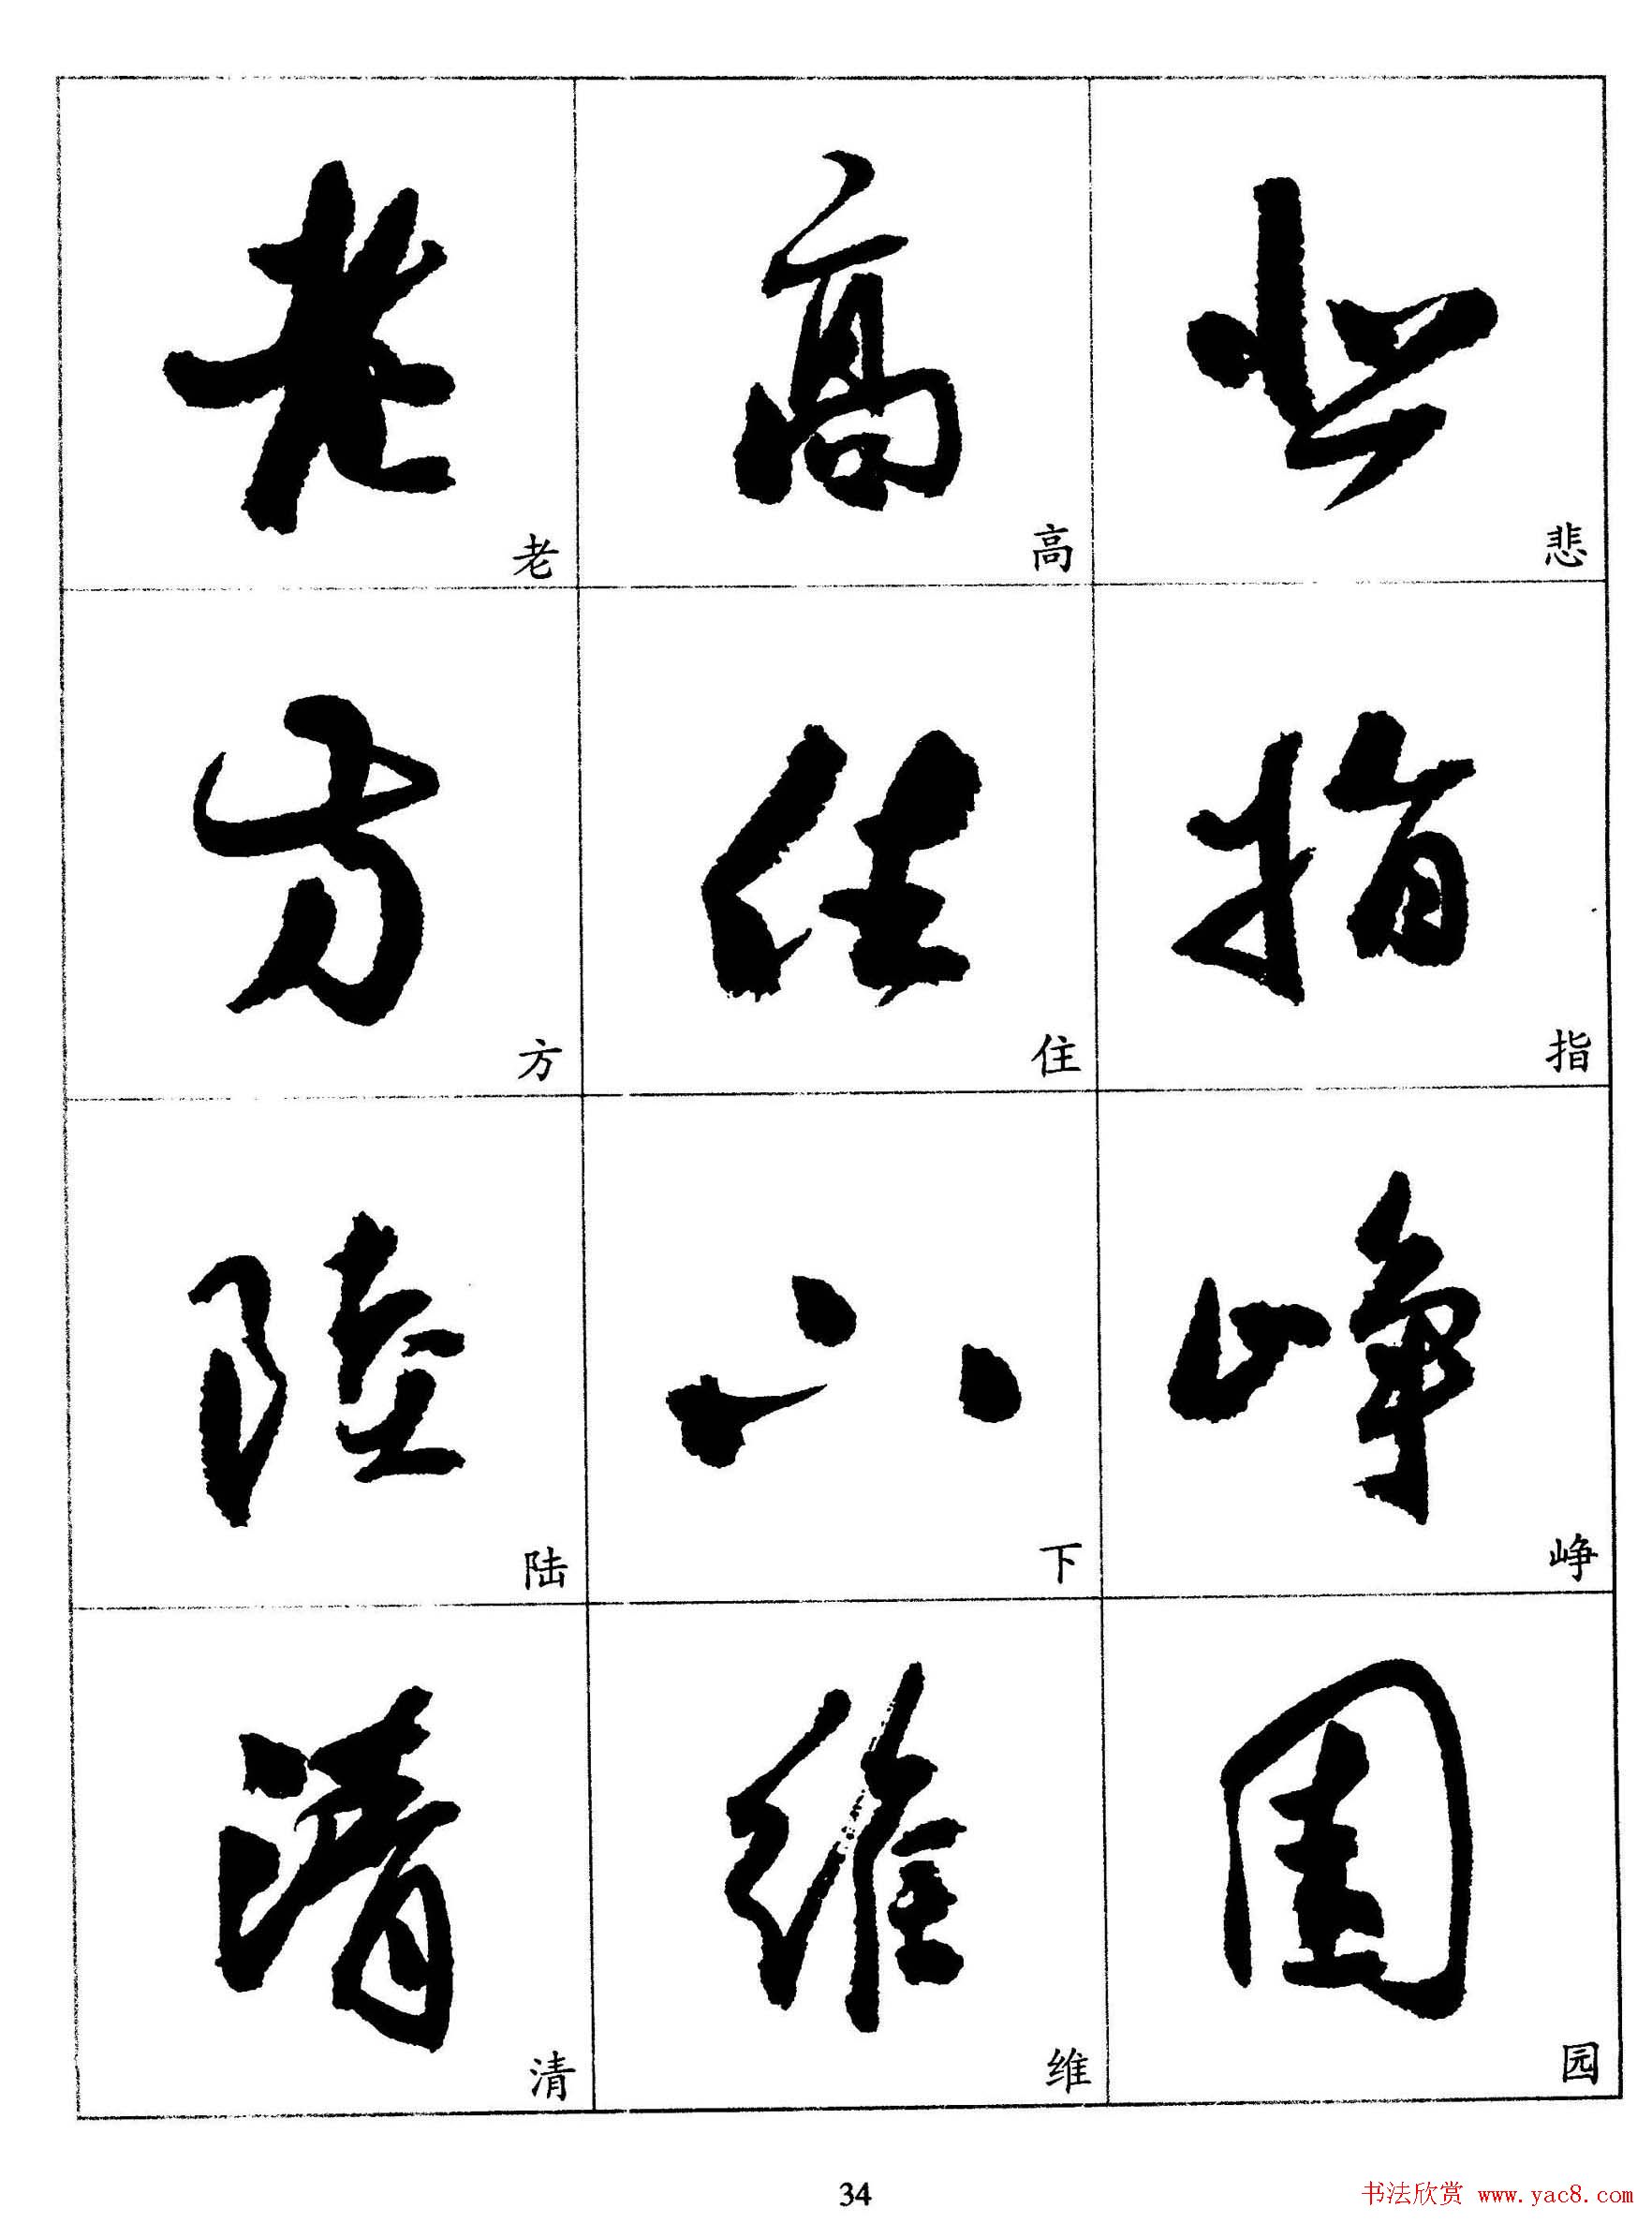 老 高 悲
老 高 悲
方 住 指
方 住 指
陸 下 崢
陆 下 峥
清 維 園
清 维 园
34
书法欣赏 www.yac8.com